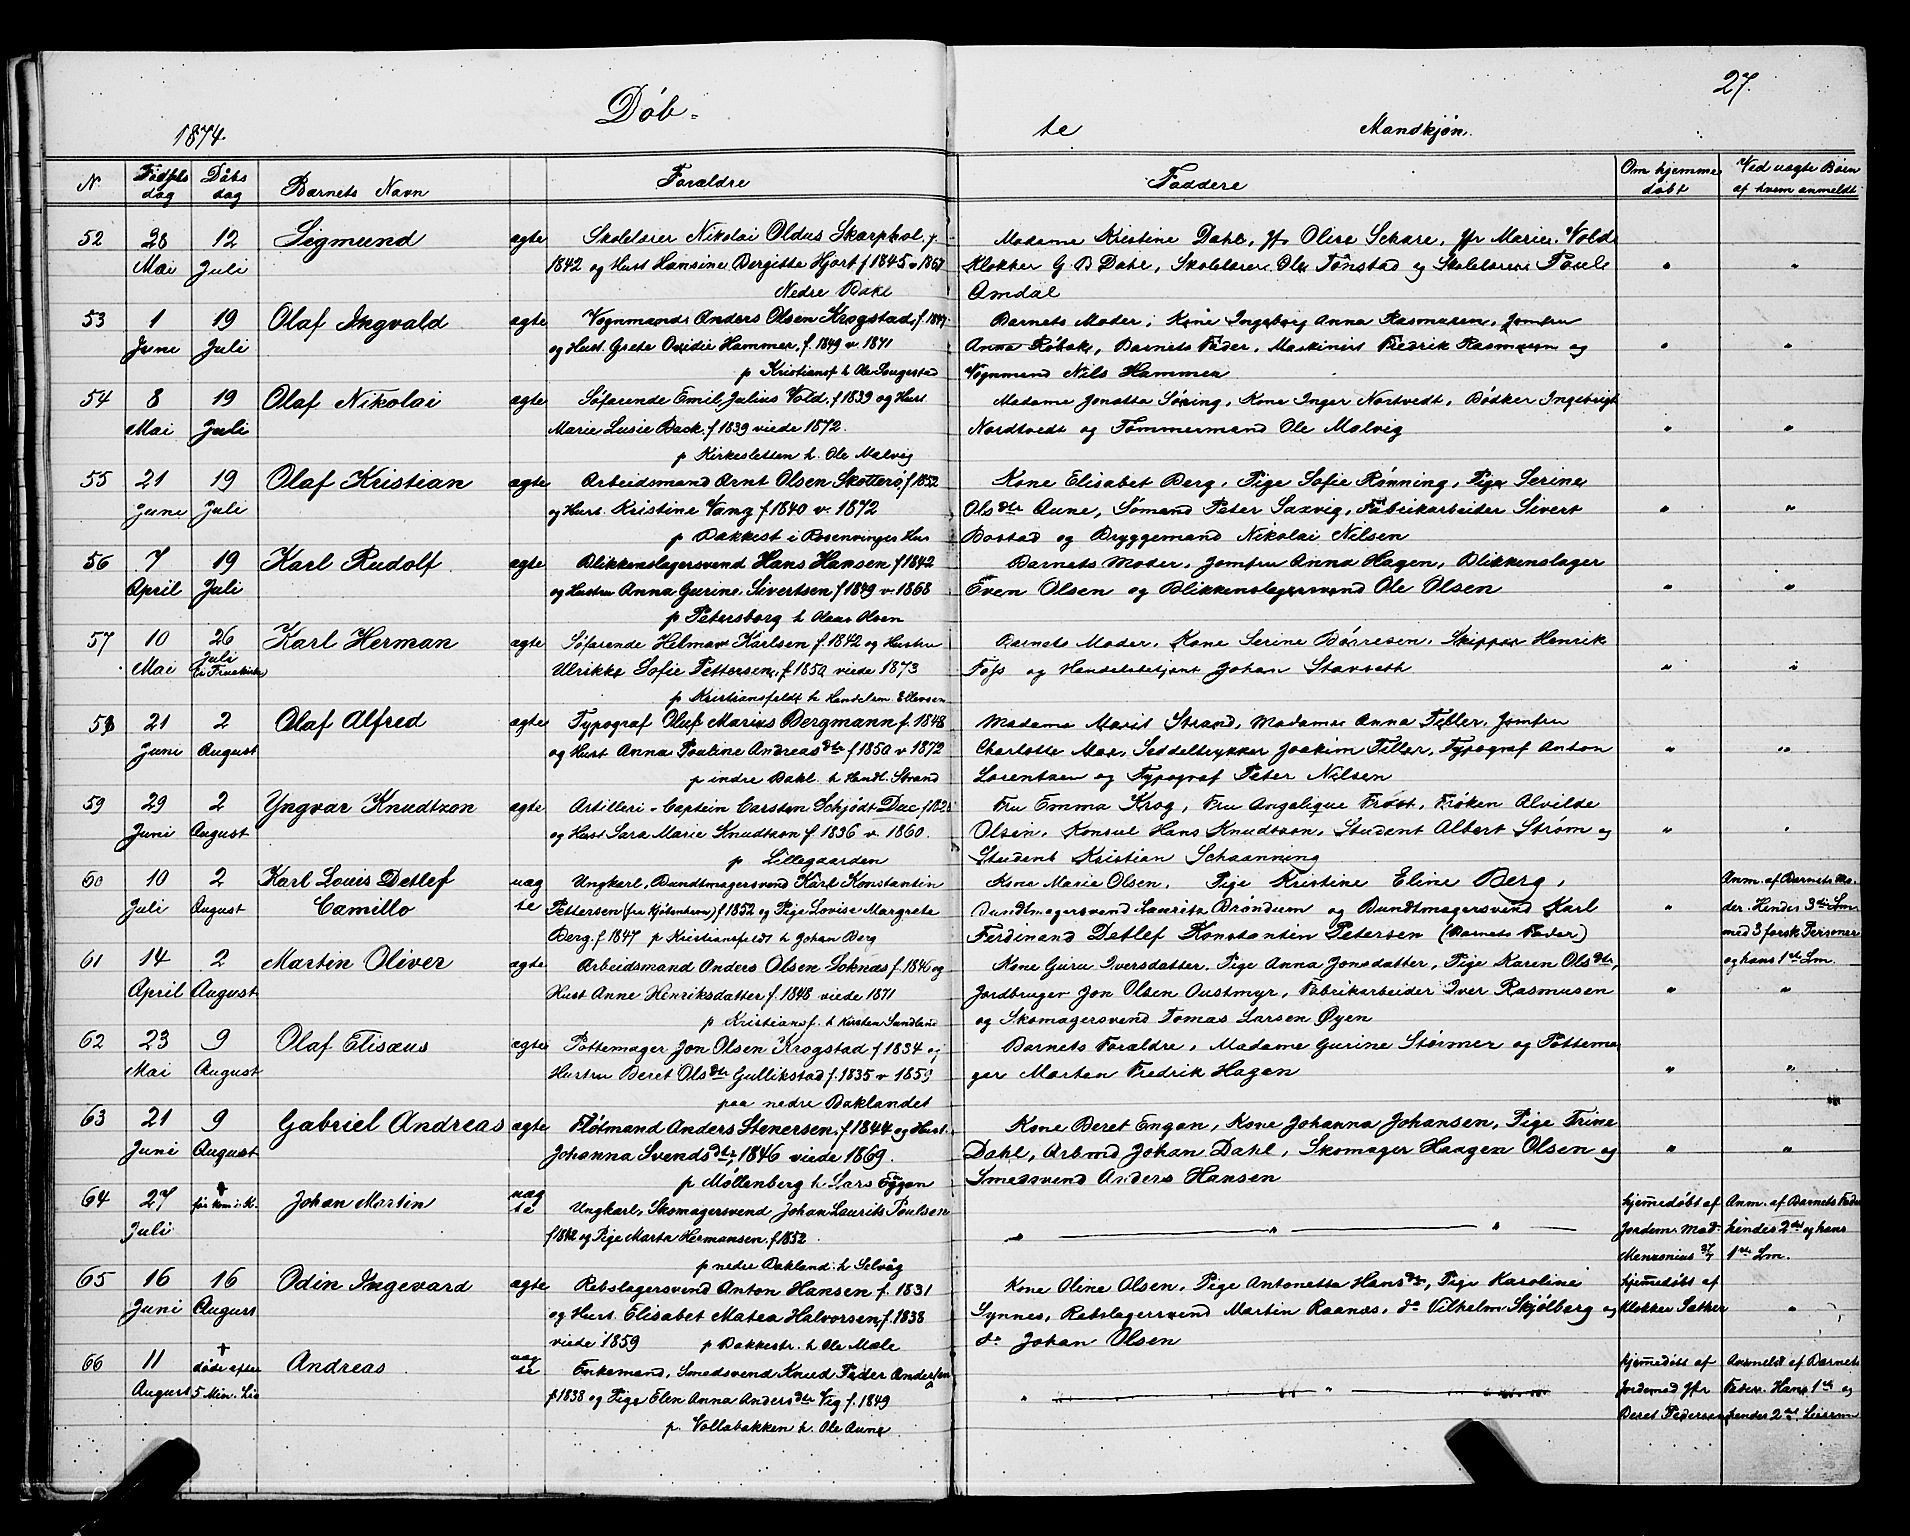 27.
1874.
Døb-
te
Mandkjøn.
N
Fødsels dag
Dåbs dag
Barnets Navn
Forældre
Faddere
Om hjemme døbt
Ved uægte Børn af hvem anmeldt
52 28 12 Sigmund ægte Skolelærer Nikolai Oldus Skarphol f. Madame Kristine Dahl, Jfr Oline Schare, Jfr Marie Vold
Mai Juli 1842 og Hust Hansine Bergitte Hjort f 1845 v 1867 Klokker G B Dahl, Skolelærer Ole Tønstad og Skolelærer Poule " "
Nedre Bakl Amdal
53 1 19 Olaf Ingvald ægte Vognmand Anders Olsen Krogstad, f. 1847 Barnets Moder, Kone Ingeborg Anna Rasmusen, Jomfru
Juni Juli og Hust. Grete Ovidie Hammer, f. 1849 v. 1871 Anna Røbak, Barnets Fader, Maskinist Fredrik Rasmusen og " "
p Kristiansf h Ole Sougestad Vognmand Nils Hammer
54 8 19 Olaf Nikolai ægte Søfarende Emil Julius Vold, f 1839 og Hust Madame Jonetta Søring, Kone Inger Nortvedt, Bødker Ingebrigt
Mai Juli Marie Lusie Back. f 1839 viede 1872. Nordtvedt og Tømmermand Ole Malvig " "
p Kirkesletten h. Ole Malvig
55 21 19 Olaf Kristian ægte Arbeidsmand Arnt Olsen Skotterø f 1852 Kone Elisabet Berg, Pige Sofie Rønning, Pige Serine
Juni Juli og Hust. Kristine Vang f 1840 v. 1872 Olsdtr Aune, Sømand Peter Saxvig, Fabrikarbeider Sivert " "
p Bakkest i Rosenvinges Hus Bostad og Bryggemand Nikolai Nilsen
56 7 19 Karl Rudolf ægte Blikkenslagersvend Hans Hansen f 1842 Barnets Moder, Jomfru Anna Hagen, Blikkenslager
April Juli og Hustru Anna Gurine Sivertsen f 1849 v. 1868 Even Olsen og Blikkenslagersvend Ole Olsen " "
p Petersborg h Olaus Olsen
57 10 26 Karl Herman ægte Søfarende Helmar Karlsen f. 1842 og Hustru Barnets Moder, Kone Serine Børresen, Skipper Henrik
Mai Juli i Fruekirke Ulrikke Sofie Pettersen, f. 1850 viede 1873 Foss og Handelsbetjent Johan Stavseth " "
p Kristiansfeldt h Handelsm. Ellevsen
58 21 2 Olaf Alfred ægte Typograf Oluf Marius Bergmann f. 1848 Madame Marit Strand, Madame Anna Tiller, Jomfru
Juni August og Hust Anna Pauline Andreasdtr f 1850 v 1872 Charlotte Moe, Seddeltrykker Joakim Tiller, Typograf Anton " "
p indre Bakl. h Handl. Strand Lorentzen og Typograf Peter Nilsen
59 29 2 Yngvar Knudtzon ægte Artilleri-Captein Carsten Schjødt Due, f 182 Fru Emma Krog, Fru Angalique Frost, Frøken Alvilde
Juni August og Hust Sara Marie Knudtzon f 1836 v. 1860. Olsen, Konsul Hans Knudtzon, Student Albert Strøm og " "
p Lillegaarden Student Kristian Schaanning
60 10 2 Karl Louis Detlef uæg Ungkarl, Bundtmagersvend Karl Konstantin Kone Marie Olsen, Pige Kristine Eline Berg, Anm. af Barnets Mo-
Juli August Camillo te Pettersen (fra Kjøbenhavn) f 1852 og Pige Lovise Margrete Bundtmagersvend Lauritz Brøndum og Bundtmagersvend Karl " der. Hendes 3die Lm
Berg, f 1847 p Kristiansfeldt h Johan Berg Ferdinand Detlef Konstantin Petersen (Barnets Fader) med 3 forsk Personer
61 14 2 Martin Oliver ægte Arbeidsmand Anders Olsen Loknæs f. 1846 og Kone Guru Iversdatter, Pige Anna Jonsdatter, Pige Karen Olsdtr, og hans 1ste Lm.
April August Hust Anne Henriksdatter f. 1848 viede 1871 Jordbruger Jon Olsen Oustmyr, Fabrikarbeider Iver Rasmusen " "
p Kristiansf. h Kirsten Sundland og Skomagersvend Tomas Larsen Øyen
62 23 9 Olaf Elisæus ægte Pottemager Jon Olsen Krogstad f 1834 og Barnets Forældre, Madame Gurine Størmer og Pottema
Mai August Hustru Beret Olsdtr Gullikstad f. 1835 v 1859 ger Morten Fredrik Hagen " "
paa nedre Baklandet
63 21 9 Gabriel Andreas ægte Fløtmand Anders Stenersen, f. 1844 og Hust. Kone Beret Engan, Kone Johanna Johansen, Pige Trine
Juni August Johanna Svendsdtr, 1846 viede 1869. Dahl, Arbmd Johan Dahl, Skomager Haagen Olsen og " "
p Møllenberg h Lars Eggen Smedsvend Anders Hansen
64 27 † før kom i K. Johan Martin uæg te Ungkarl, Skomagersvend Johan Laurits Poulsen hjemmedøbt af Anm. af Barnets Fader
Juli f 1842 og Pige Marta Hermansen, f. 1852 " " " Jordem. Mad. hendes 2det og hans
p nedre Bakland h Selvåg Menzonius 27/7 1ste Lm.
65 16 16 Odin Ingevard ægte Rebslagersvend Anton Hansen f. 1831 Kone Oline Olsen, Pige Antonetta Hansdtr, Pige Karoline hjemmedøbt af
Juni August og Hust. Elisabet Matea Halvorsen f. 1838 Synnes, Rebslagersvend Martin Raanæs, do Vilhelm Skjølberg og Klokker Sakker "
viede 1859 p Bakkestr. h Ole Mæle do Johan Olsen
66 11 † døde efter Andreas uæg te Enkemand, Smedsvend Knud Peder Andersen hjemmedøbt af Anmeldt af Barnets
August 5 Min. Liv f. 1838 og Pige Elen Anna Andersdtr Vig f. 1849 " " " Jordemod Jfr Fader. Hans 1ste og
p. Vollabakken h. Ole Aune Beret Pedersen hendes 2det Leierm